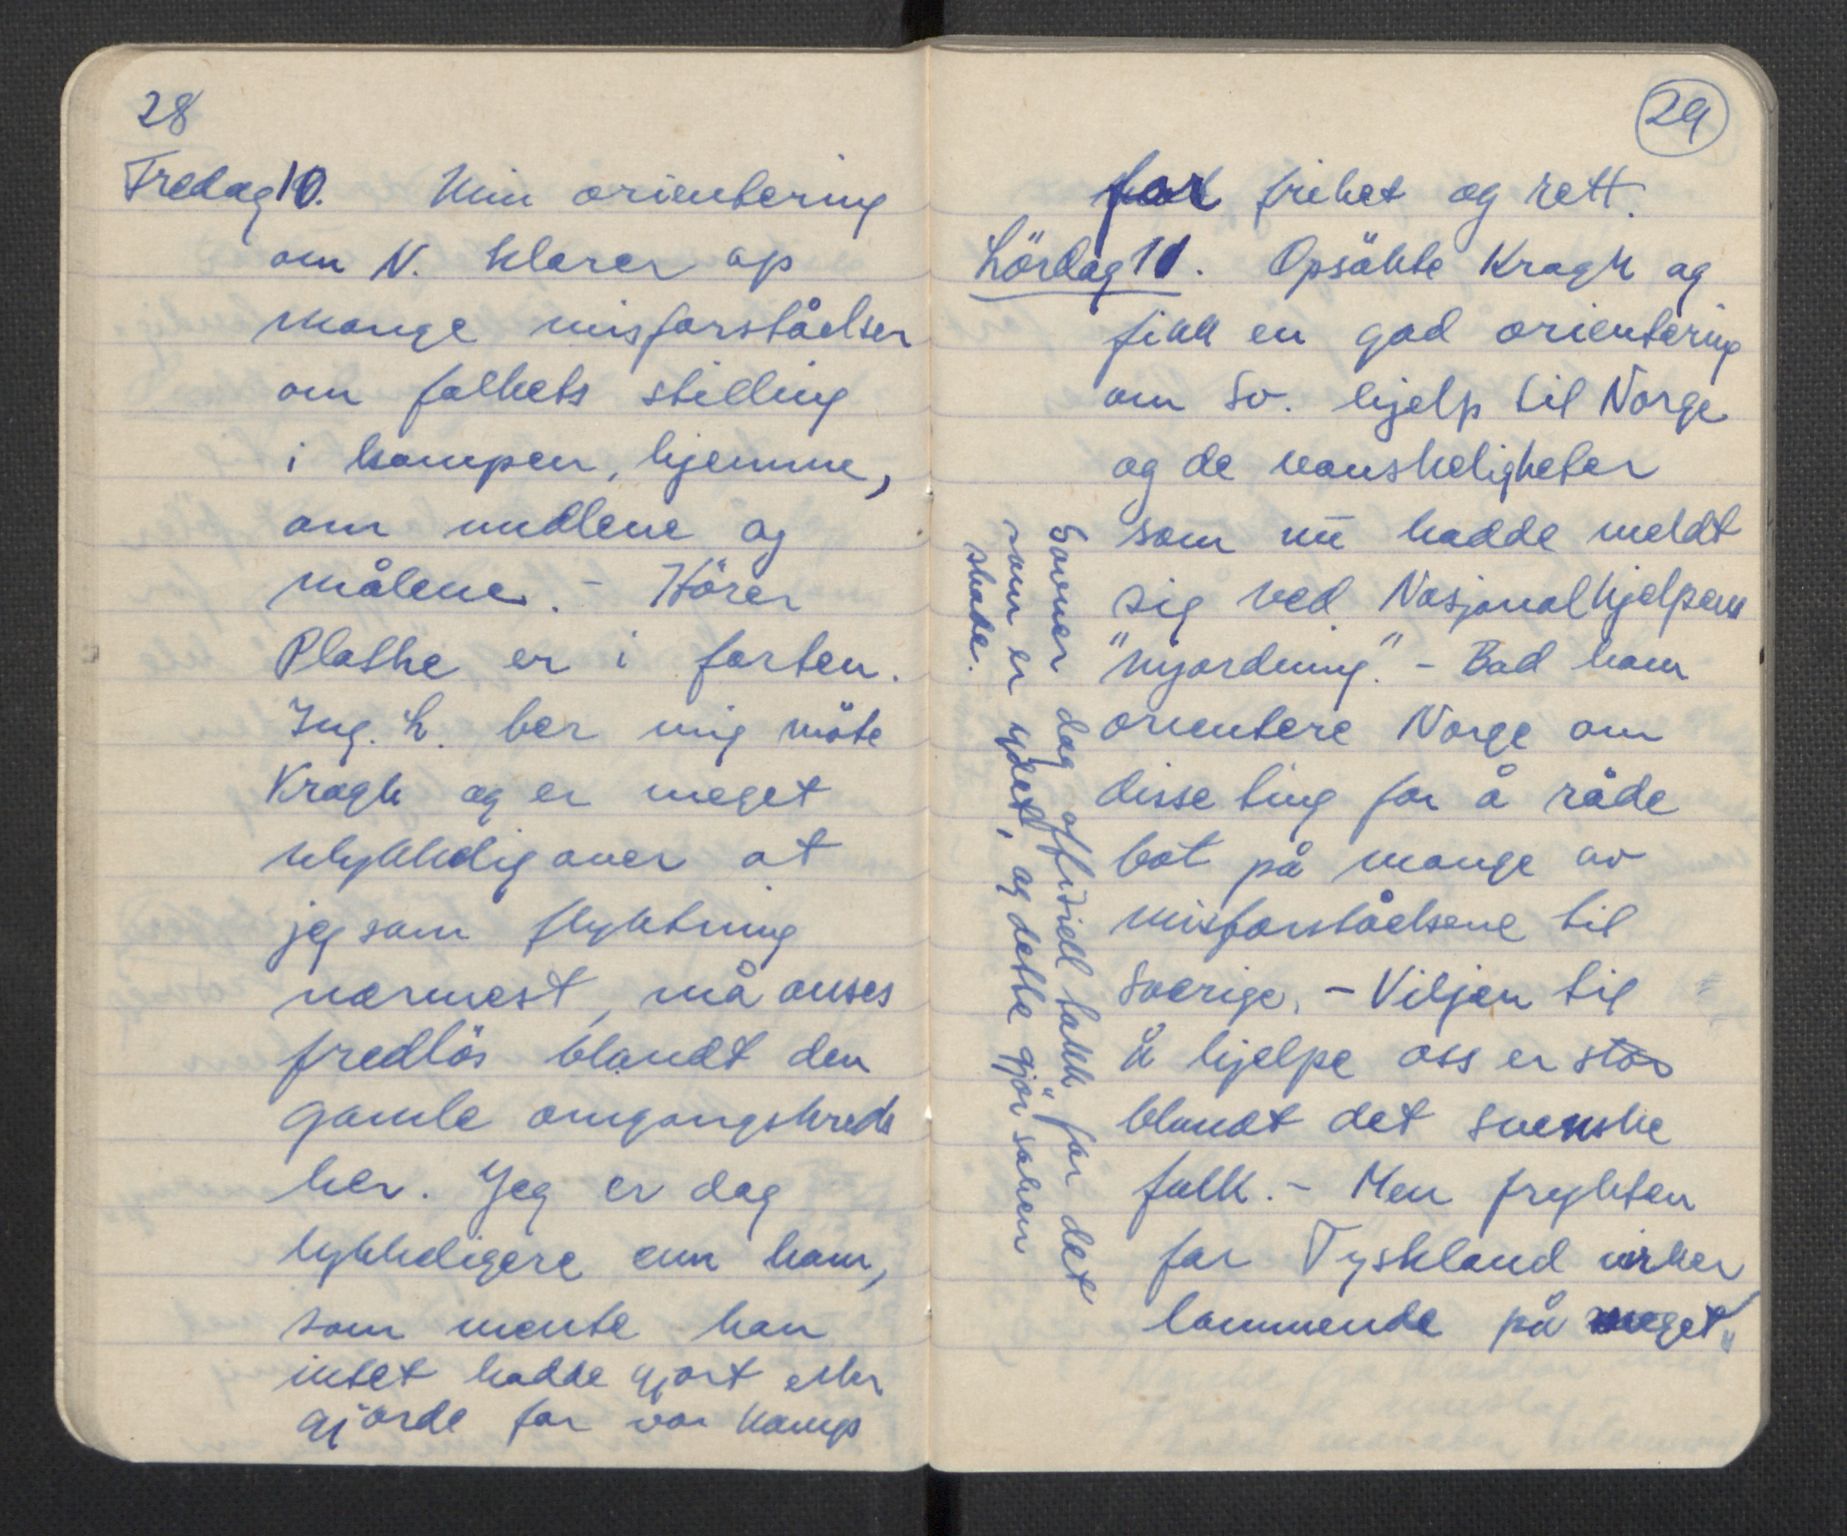 28
Fredag 10. Min orientering
om N. klarer op
mange misforståelser
om folkets stilling
i kampen, hjemme,
om midlene og
målene. - Hörer
Plathe er i farten.
Ing. L. ber mig möte
Kragh og er meget
ulykkelig over at
jeg som flyktning
nærmest, må anses
fredlös blandt den
gamle omgangskreds
her. Jeg er dog
lykkeligere enn ham,
som mente han
intet hadde gjort eller
gjorde for vor kamp
29
for frihet og rett.
Lördag 11. Opsökte Kragh og
fikk en god orientering
om Sv. hjelp til Norge
og de vanskeligheter
som nu hadde meldt
sig ved Nasjonalhjelpens
"nyordning". - Bad ham
orientere Norge om
disse ting for å råde
bot på mange av
misforståelsene til
Sverige. - Viljen til
å hjelpe oss er stor
blandt det svenske
folk. - Men frykten
for Tyskland virker
lammende på meget.
Savner dog offisiell takk for det
som er ydet, og dette gjör saken
skade.